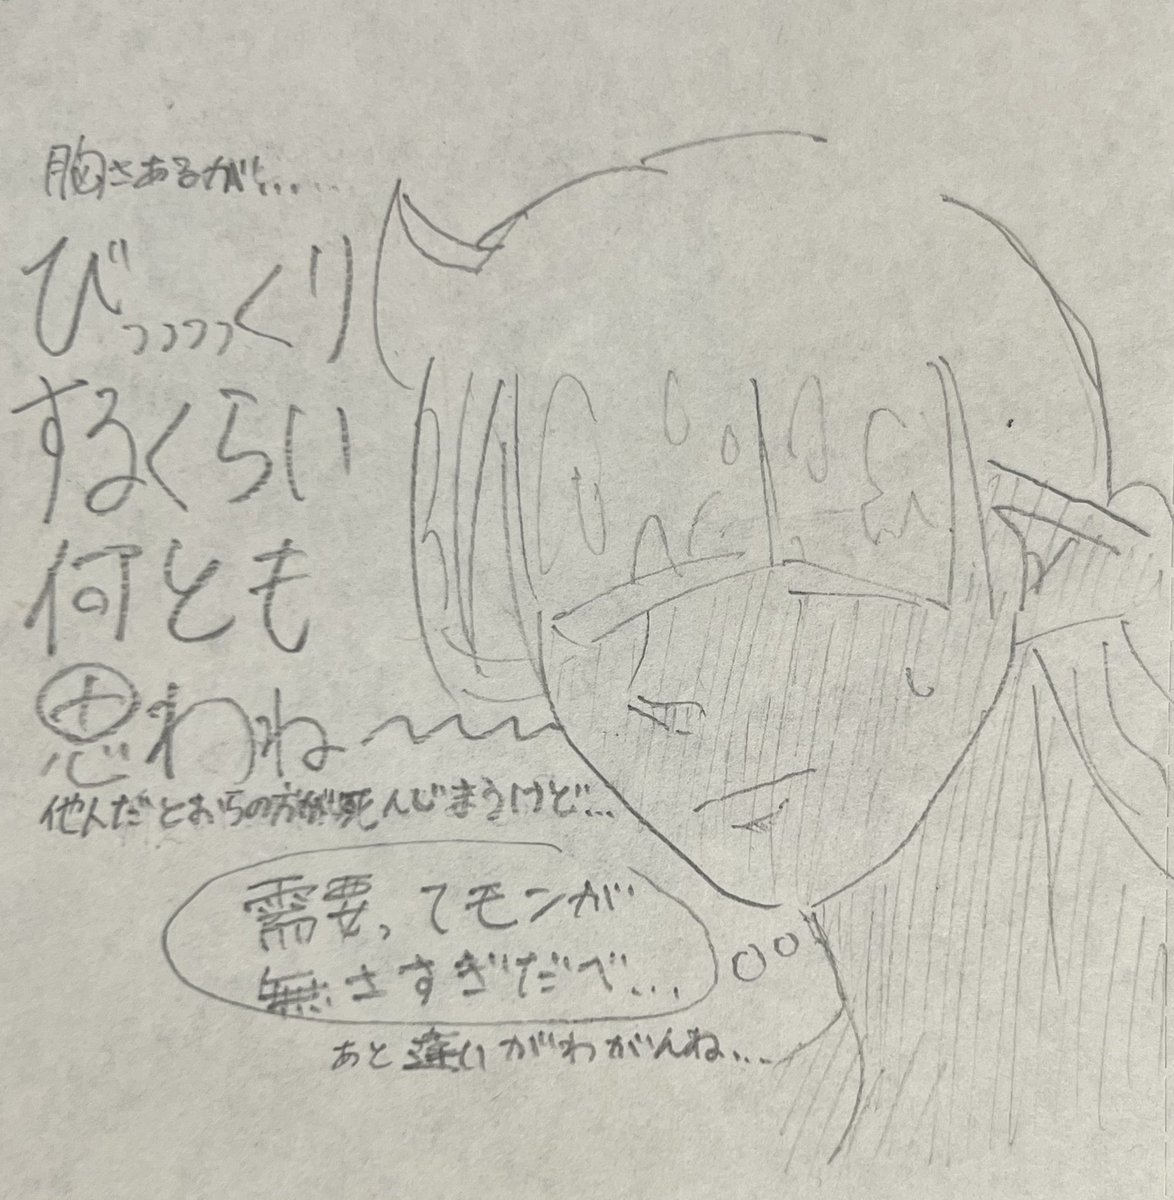 胸さあるが……
びっっっっくり
するくらい
何とも
思わね〜〜〜
他んだとおらの方が死んじまうけど…
需要、てモンが
無さすぎだべ…
あと違いがわがんね…